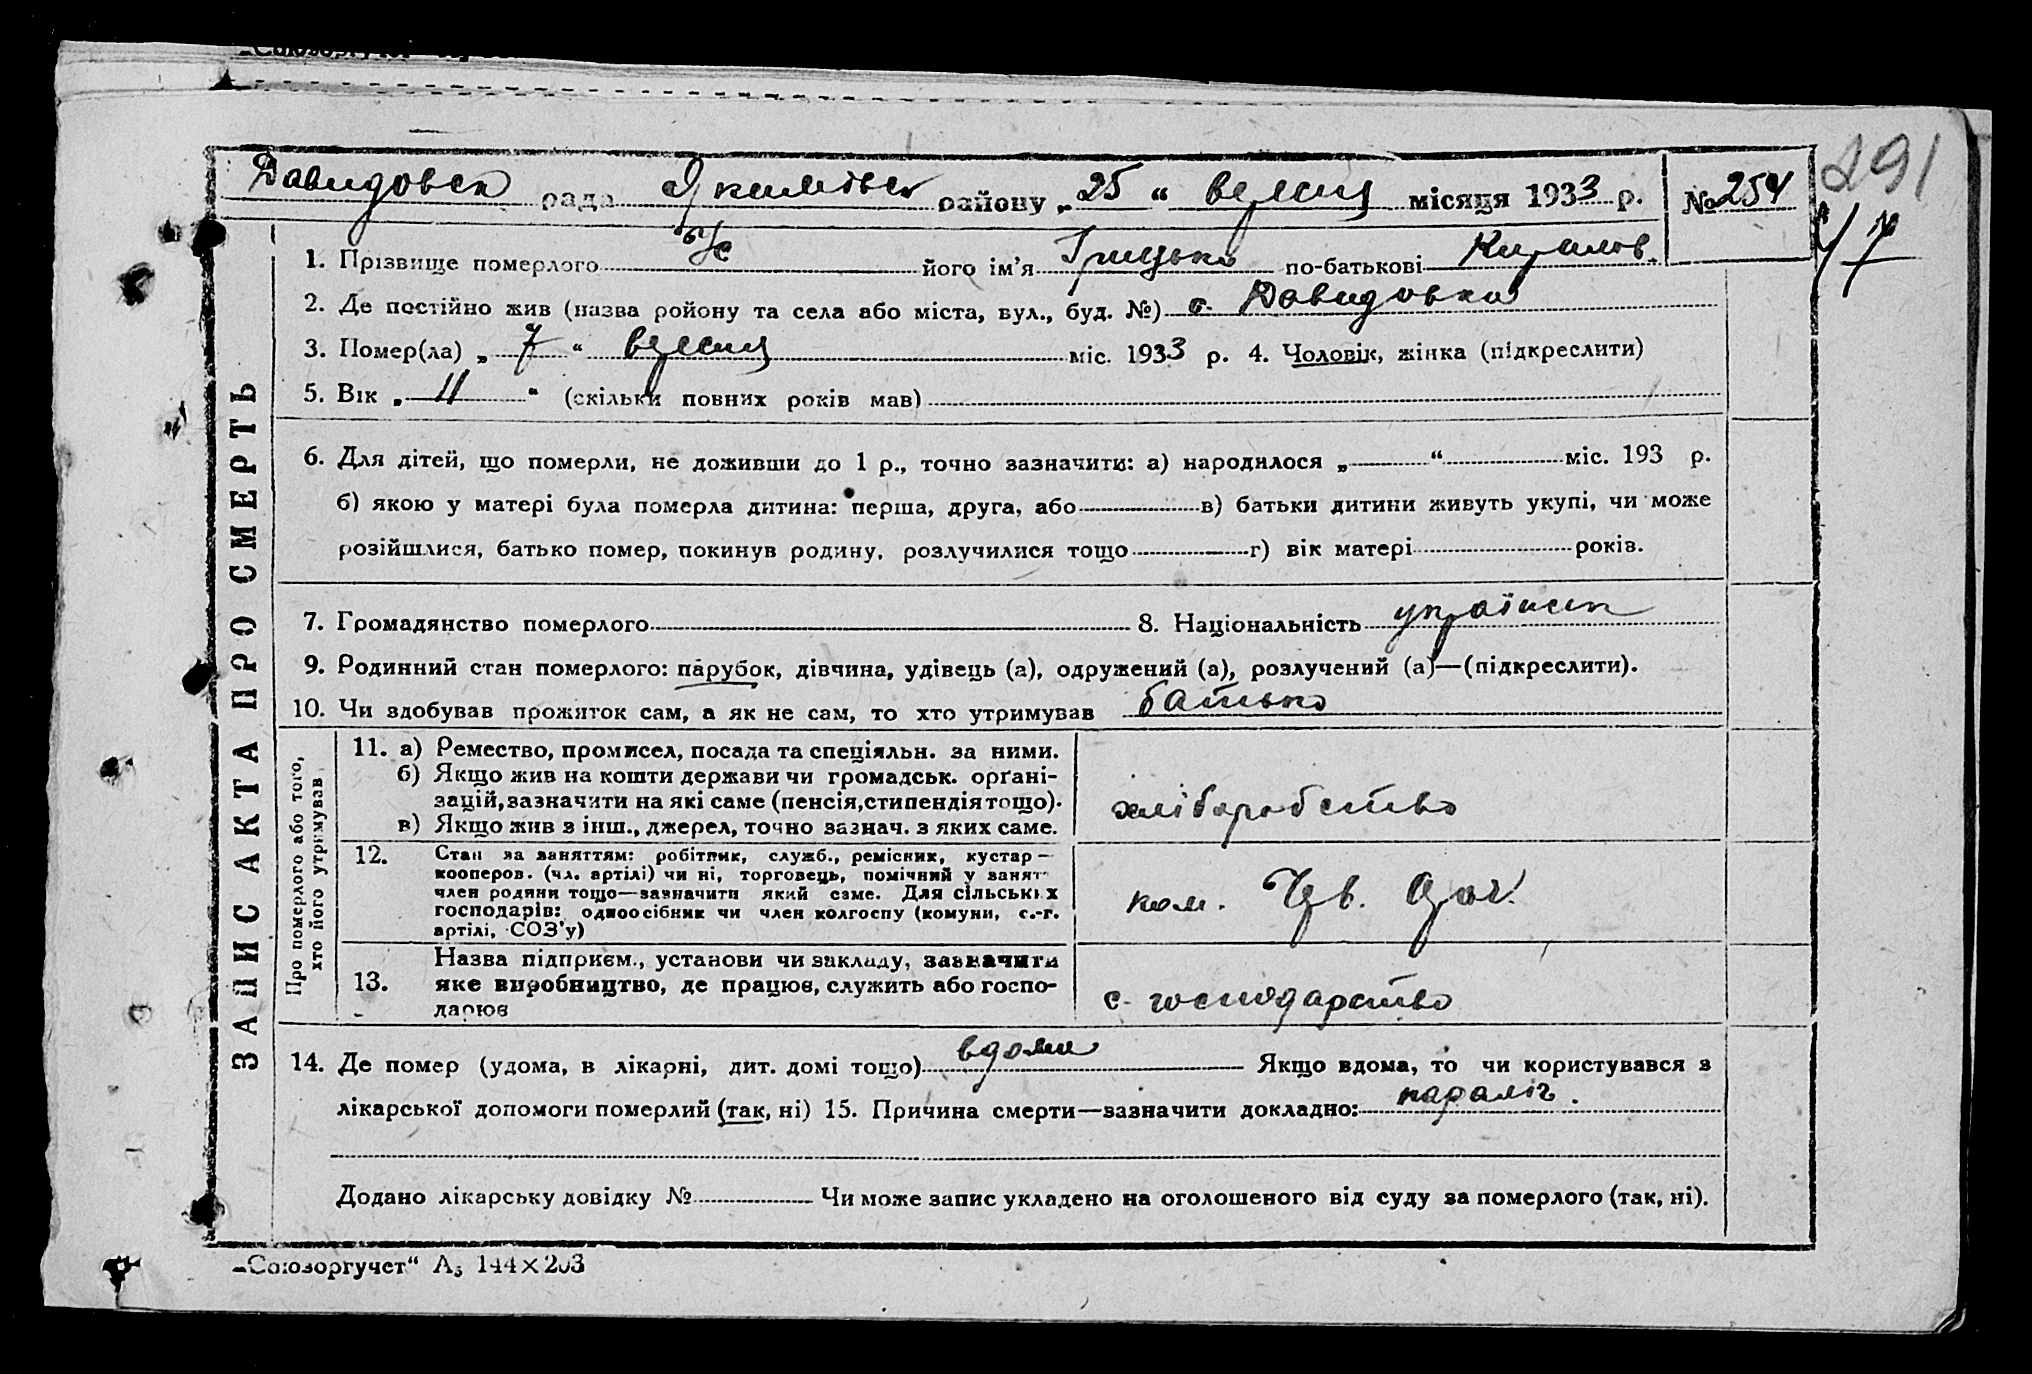 Давидовск рада Якимівск району „25“ вересня місяця 1933 р. № 254
291
1. Прізвище померлого його ім’я Грицько по-батькові Кирилов.
2. Де постійно жив (назва ройону та села або міста, вул., буд. №) с. Давидовка
3. Помер(ла) „ 7 “ вересня міс. 1933 р. 4. Чоловік, жінка (підкреслити)
5. Вік „ 11 “ (скільки повних років мав)
6. Для дітей, що померли, не доживши до 1 р., точно зазначити: а) народилося „ “ міс. 193 р.
б) якою у матері була померла дитина: перша, друга, або в) батьки дитини живуть укупі, чи може
розійшлися, батько помер, покинув родину, розлучилися тощо г) вік матері років.
7. Громадянство померлого 8. Національність українск
9. Родинний стан померлого: парубок, дівчина, удівець (а), одружений (а), розлучений (а)—(підкреслити).
10. Чи здобував прожиток сам, а як не сам, то хто утримував батько
ЗАПИС АКТА ПРО СМЕРТЬ
Про померлого або того,
хто його утримував
11. а) Ремество, промисел, посада та спеціяльн. за ними.
б) Якщо жив на кошти держави чи громадськ. орґані-
зацій, зазначити на які саме (пенсія, стипендія тощо).
в) Якщо жив з інш., джерел, точно зазнач. з яких саме.
хліборобство
12. Стан за заняттям: робітник, служб., ремісник, кустар—
кооперов. (чл. артілі) чи ні, торговець, помічний у занят
член родини тощо—зазначити який саме. Для сільських
господарів: одноосібник чи член колгоспу (комуни, с.-г.
артілі, СОЗ’у)
ком. Чв.
13. Назва підприєм., установи чи закладу, зазначити
яке виробництво, де працює, служить або госпо-
дарює
с-господарство
14. Де помер (удома, в лікарні, дит. домі тощо) вдома Якщо вдома, то чи користувався з
лікарської допомоги померлий (так, ні) 15. Причина смерти—зазначити докладно: параліч.
Додано лікарську довідку № Чи може запис укладено на оголошеного від суду за померлого (так, ні).
„Союзоргучет“ А₅ 144×203